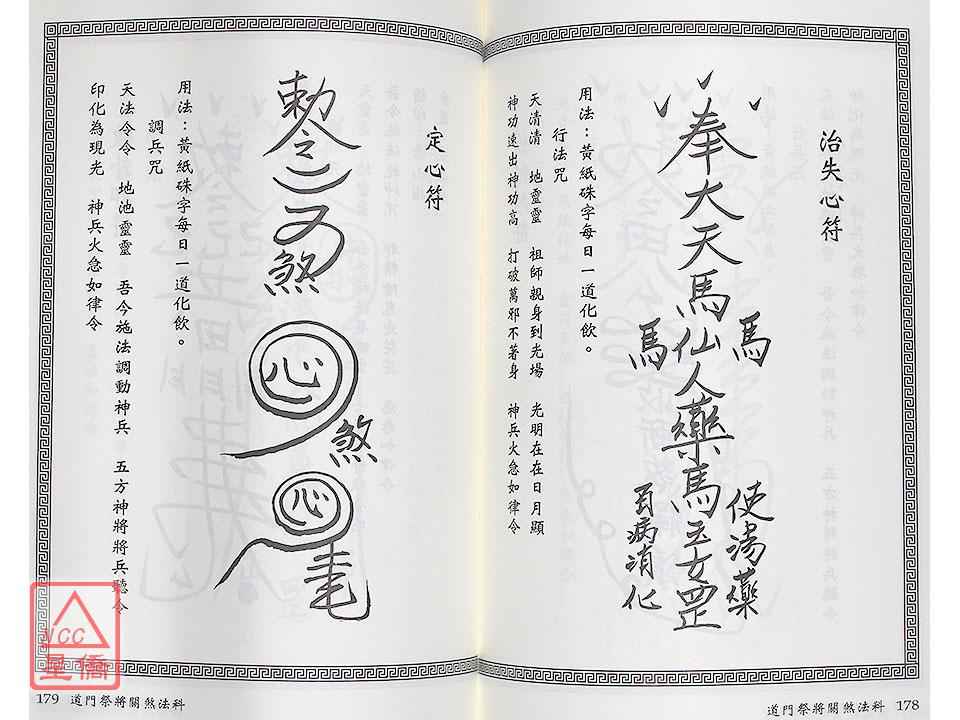 治失心符
奉大天馬仙人藥馬玉女罡
馬
馬
使湯藥
百病消化
用法：黃紙硃字每日一道化飲。
行法咒
天清清 地靈靈 祖師親身到光場 光明在在日月顯
神功速出神功高 打破萬邪不著身 神兵火急如律令
道門祭將關煞法科 178
定心符
勅令
煞
心
煞
心
用法：黃紙硃字每日一道化飲。
調兵咒
天法令令 地池靈靈 吾今施法調動神兵 五方神將將兵聽令
印化為現光 神兵火急如律令
179 道門祭將關煞法科
NCC
星僑